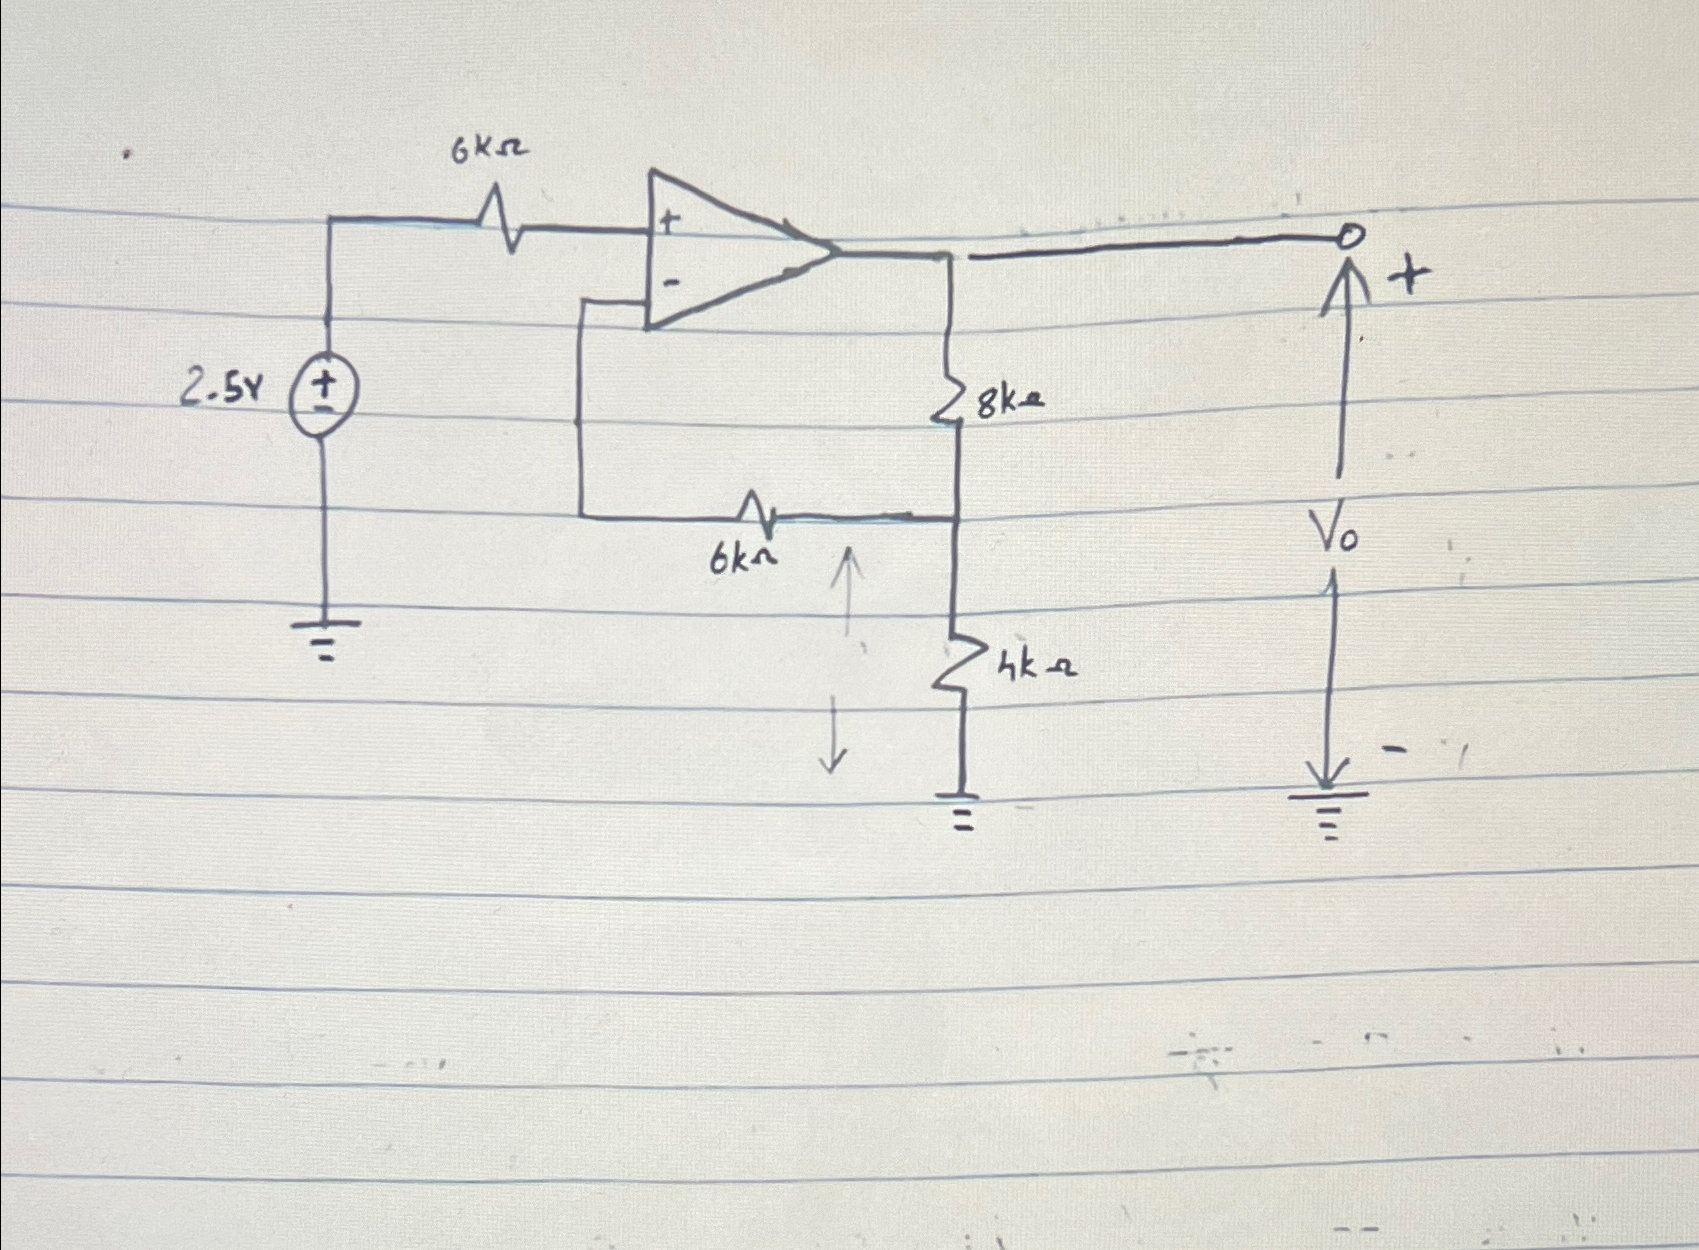 6kΩ
+
-
+
2.5V
+
-
8kΩ
6kΩ
Vo
4kΩ
-